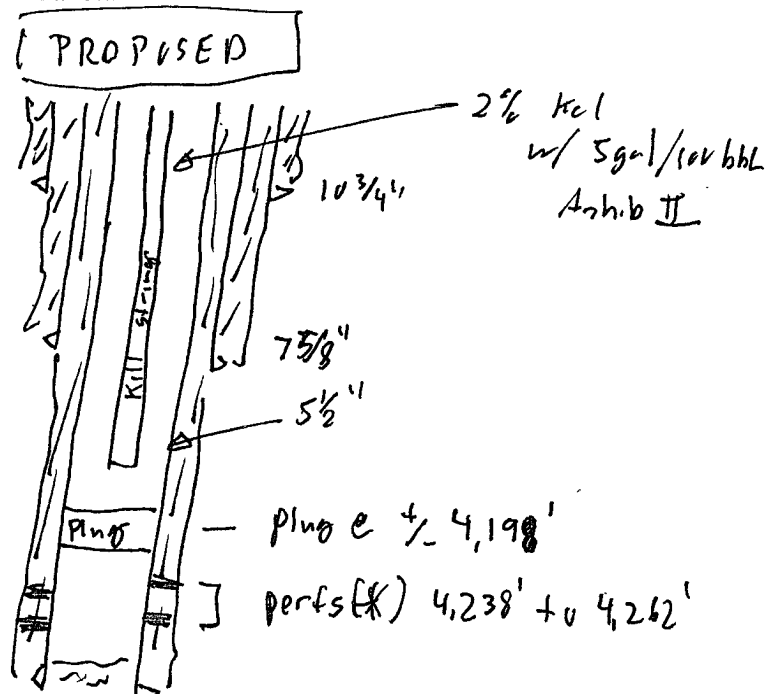 PROPOSED
2% Kcl
w/ 5gal/100 bbL
Anhib II
10 3/4"
Kill string
7 5/8"
5 1/2"
Plug
plug @ +/- 4,198'
perfs (K) 4,238' to 4,262'